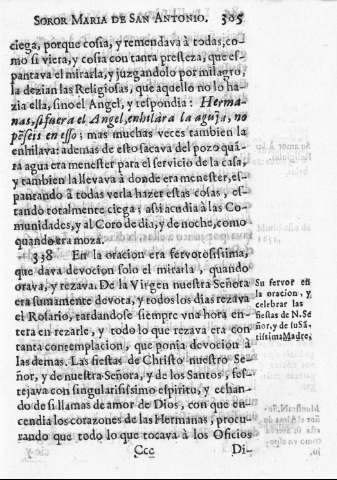 SOROR MARIA DE SAN ANTONIO. 305
ciega, porque cosia, y remendava à todas, co-
mo si viera, y cosia con tanta presteza, que es-
pantava el mirarla, y juzgandolo por milagro,
la dezian las Religiosas, que aquello no lo ha-
zia ella, sino el Angel, y respondia: Herma-
nas, si fuera el Angel, enhilàra la aguja, no
pẽseis en esso; mas muchas veces tambien la
enhilava: ademas de esto sacava del pozo quã-
ra agua era menester para el servicio de la casa,
y tambien la llevava à donde era menester, es-
pantando à todas verla hazer estas cosas, es-
tando totalmente ciega: assi acudia à las Co-
munidades, y al Coro de dia, y de noche, como
quando era moza.
338 En la oracion era fervorosissima,
que dava devocion solo el mirarla, quando
orava, y rezava. De la Virgen nuestra Señora
era sumamente devota, y todos los dias rezava
el Rosario, tardandose siempre vna hora en-
tera en rezarle, y todo lo que rezava era con
tanta contemplacion, que ponia devocion à
las demas. Las fiestas de Christo nuestro Se-
ñor, y de nuestra Señora, y de los Santos, fes-
tejava con singularissimo espiritu, y echan-
do de si llamas de amor de Dios, con que en-
cendia los corazones de las Hermanas, procu-
rando que todo lo que tocava à los Oficios
Su fervor en
la oracion, y
celebrar las
fiestas de N. Se
ñor, y de su Sã-
tissima Madre.
Ccc Di-